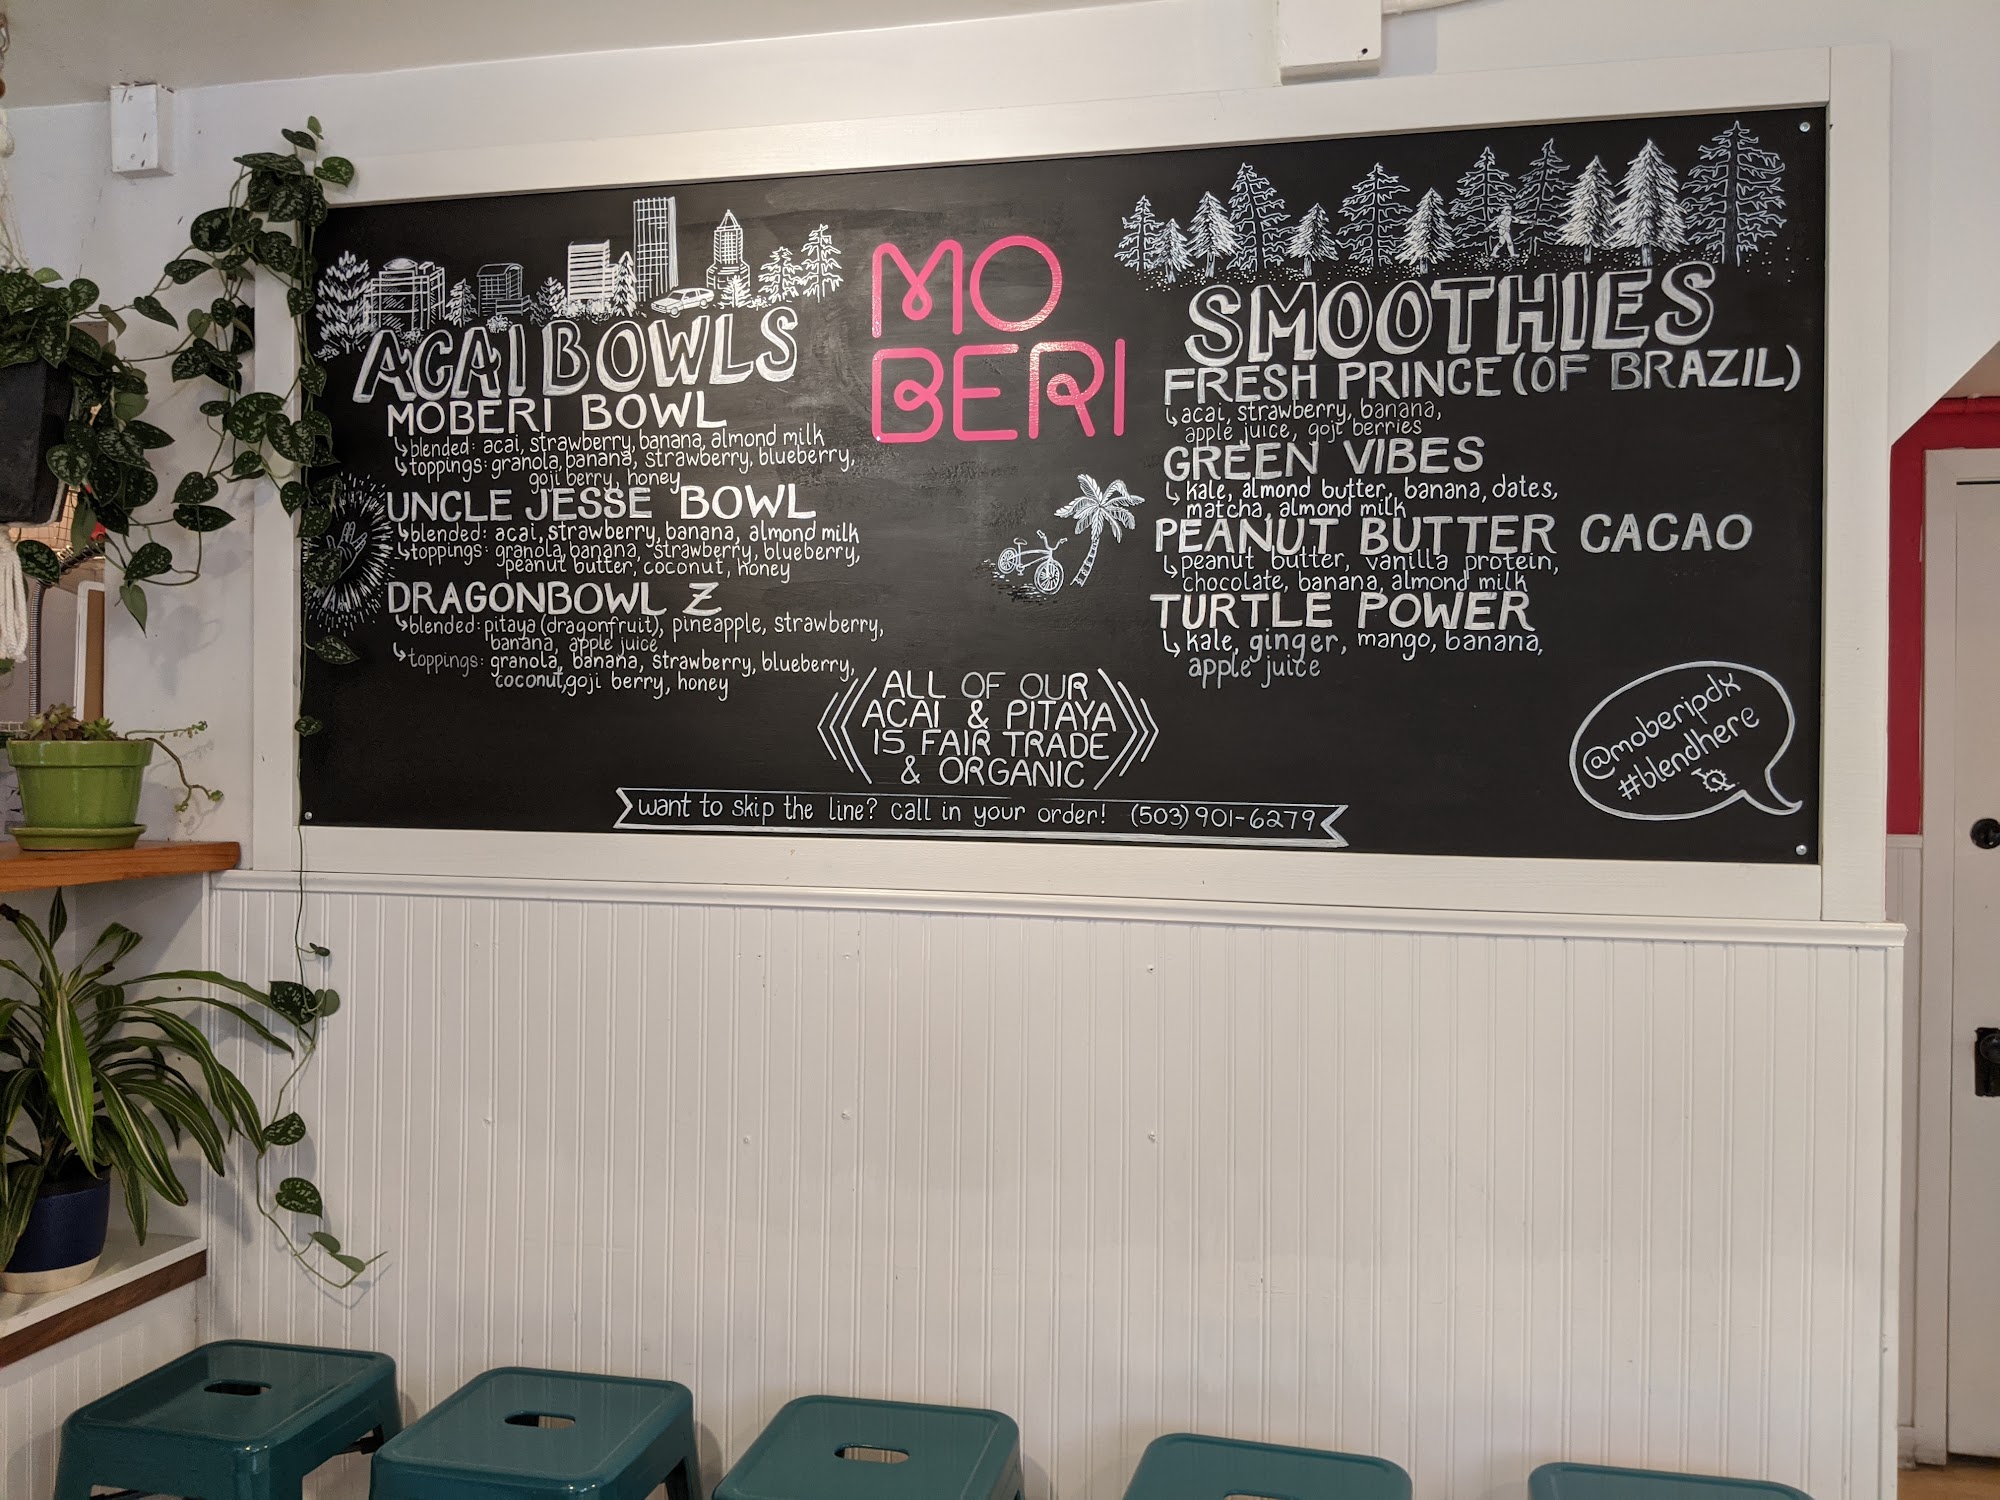 ACAI BOWLS
MOBERI BOWL
blended: acai, strawberry, banana, almond milk
toppings: granola, banana, strawberry, blueberry,
goji berry, honey
UNCLE JESSE BOWL
blended: acai, strawberry, banana, almond milk
toppings: granola, banana, strawberry, blueberry,
peanut butter, coconut, honey
DRAGONBOWL Z
blended: pitaya (dragonfruit), pineapple, strawberry,
banana, apple juice
toppings: granola, banana, strawberry, blueberry,
coconut, goji berry, honey
MO
BERI
ALL OF OUR
ACAI & PITAYA
IS FAIR TRADE
& ORGANIC
SMOOTHIES
FRESH PRINCE (OF BRAZIL)
acai, strawberry, banana,
apple juice, goji berries
GREEN VIBES
kale, almond butter, banana, dates,
matcha, almond milk
PEANUT BUTTER CACAO
peanut butter, vanilla protein,
chocolate, banana, almond milk
TURTLE POWER
kale, ginger, mango, banana,
apple juice
@moberipdx
#blendhere
want to skip the line? call in your order! (503) 901-6279